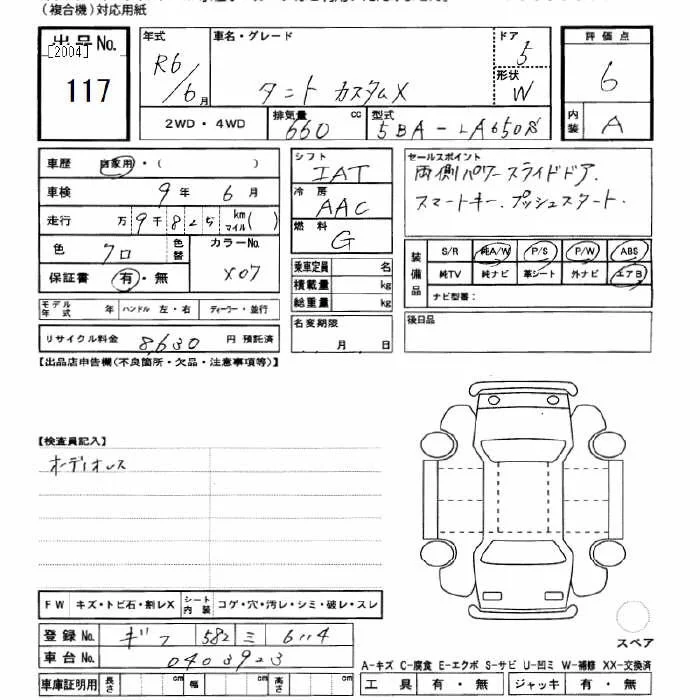 (複合機)対応用紙
出品No.
[2004]
117
年式 車名・グレード ドア
R6/6月 タント カスタムX 5
形状
W
2WD・4WD 排気量 660 cc 型式 5BA-LA650S
評価点
6
内装 A
車歴 自家用・( )
車検 9年 6月
走行 万9千825 km マイル( )
色 クロ 色替 カラーNo. X07
保証書 有・無
モデル年式 年 ハンドル 左・右 ディーラー・並行
リサイクル料金 8,630 円 預託済
シフト IAT
冷房 AAC
燃料 G
乗車定員 名
積載量 kg
総重量 kg
名変期限
月 日
セールスポイント
両側パワースライドドア.
スマートキー.プッシュスタート.
装備品 S/R 純A/W P/S P/W ABS
純TV 純ナビ 革シート 外ナビ エアB
ナビ型番:
後日品
【出品店申告欄(不良箇所・欠品・注意事項等)】
【検査員記入】
オーディオレス
FW キズ・トビ石・割レX シート内装 コゲ・穴・汚レ・シミ・破レ・スレ
登録No. ギフ 582 ミ 6114
車台No. 0403923
車庫証明用 長さ cm 幅 cm 高さ cm
スペア
A-キズ C-腐食 E-エクボ S-サビ U-凹ミ W-補修 XX-交換済
工具 有・無 ジャッキ 有・無